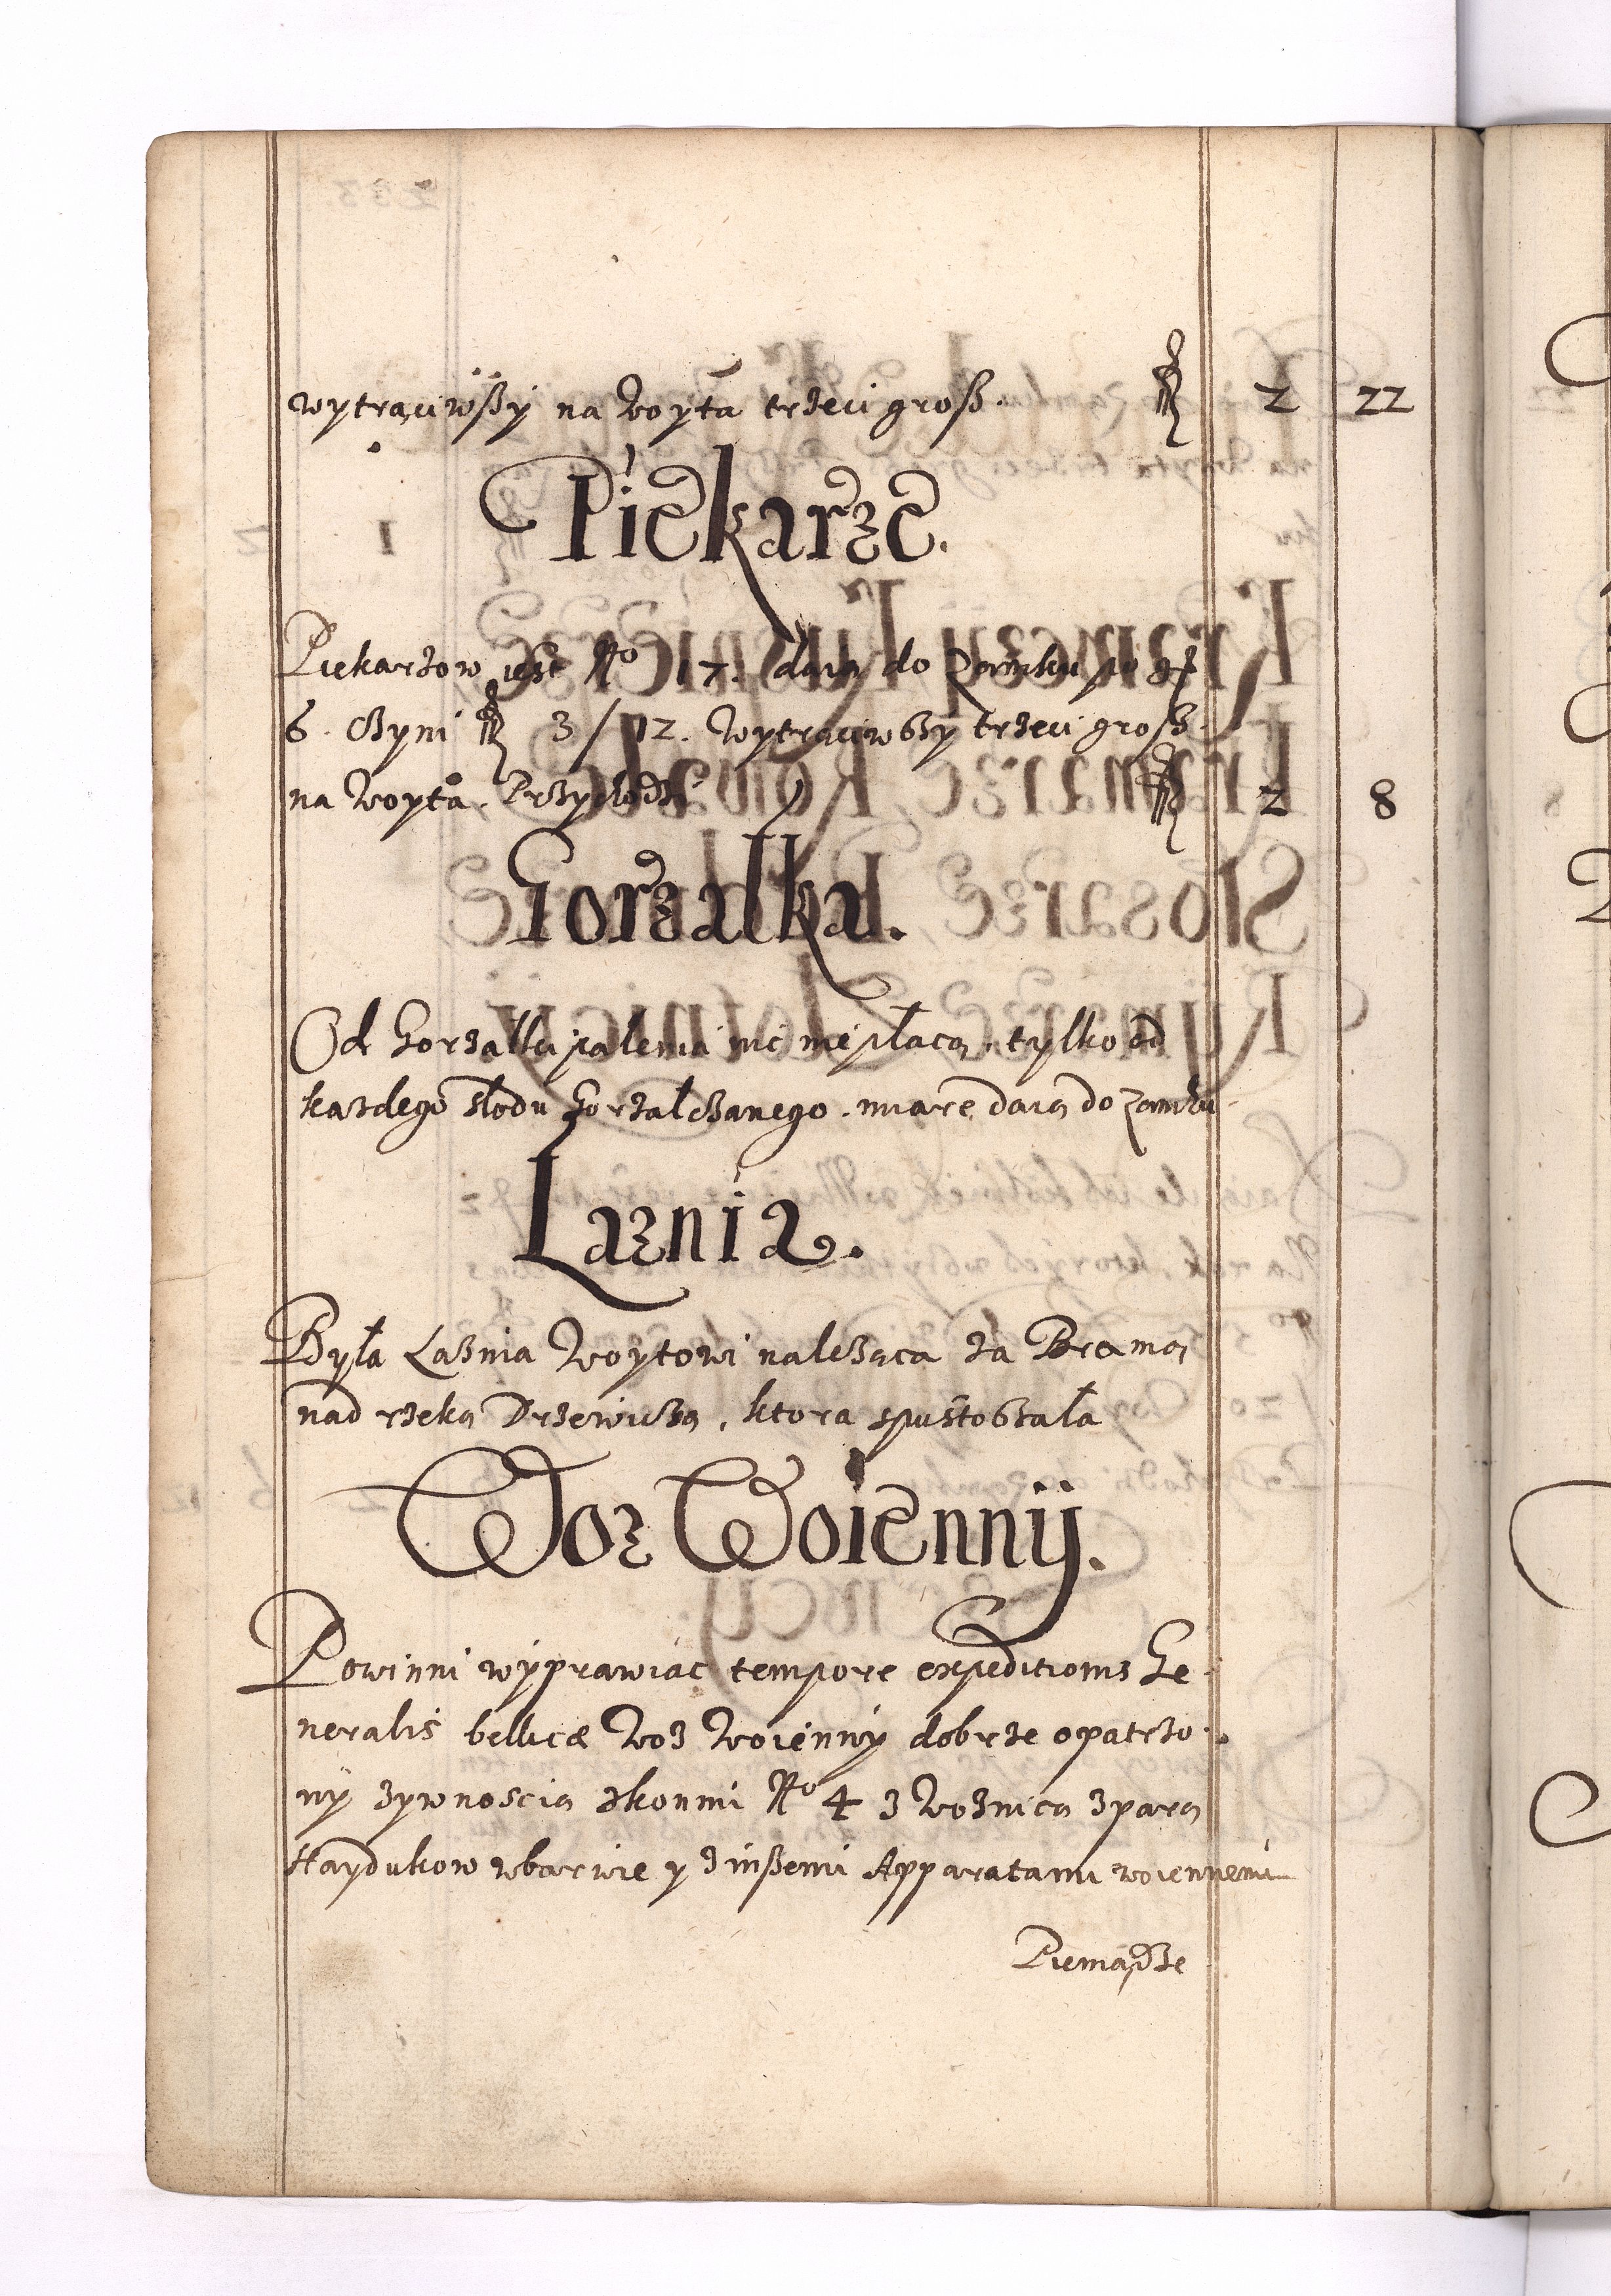 wytrąciwßy na Woyta trzeci groß. fl 2 22
Piekarze.
Piekarzow iest No 17. daią do Zamku po gr
6. Czyni fl 3/12. Wytrąciwszy trzeci grosz
na Woyta. Przychodzi fl 2 8
Gorzalka.
Od Gorzałki palenia nic nie płacą. tylko od
kazdego słodu gorzałczanego. miarę daią do zamku.
Laznia.
Była Łaznia Woytowi naleząca za Bramą
nad rzeką Drzewiczą, ktora spustoszała
Woz Woiennij.
Powinni wyprawiac tempore expeditionis Ge
neralis bellicæ Woz Woienny dobrze opatrzo
ny zywnoscią zkonmi No 4 z Woznicą zparą
Haydukow wbarwie y z inßemi Apparatami woiennemi
Pieniądze